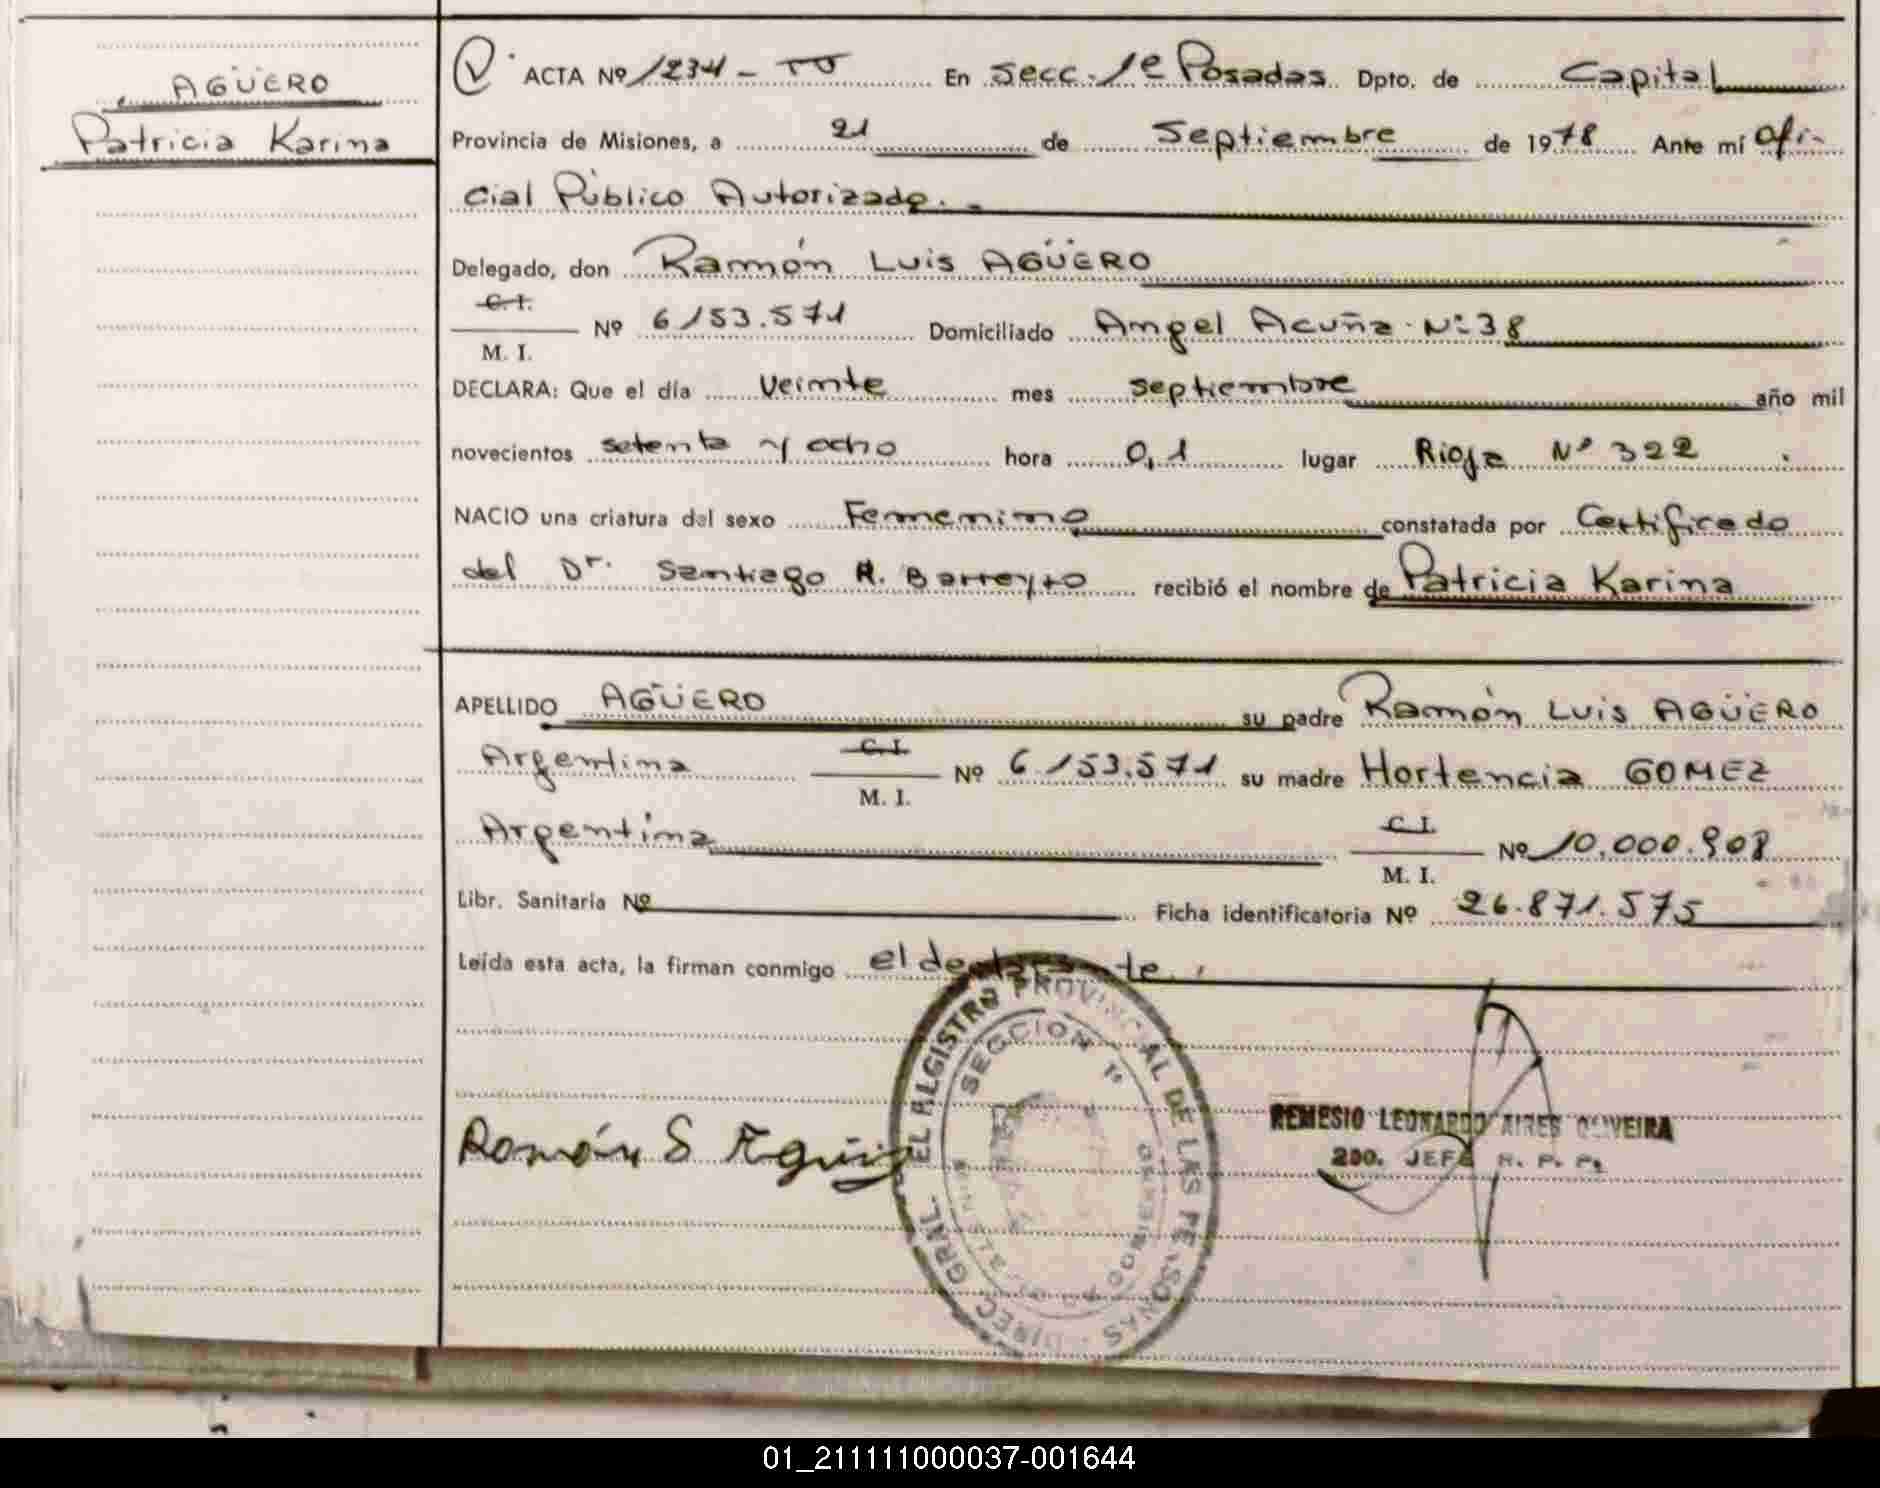 AGÜERO
Patricia Karina
ACTA Nº 1234 - TO En Secc. 1º Posadas Dpto. de Capital
Provincia de Misiones, a 21 de Septiembre de 1978 Ante mí Ofi-
cial Público Autorizado.-
Delegado, don Ramón Luis AGÜERO
C.I.
M. I. Nº 6153.571 Domiciliado Angel Acuña Nº 38
DECLARA: Que el día veinte mes septiembre año mil
novecientos setenta y ocho hora 0,1 lugar Rioja Nº 322
NACIO una criatura del sexo Femenino constatada por Certificado
del Dr. Santiago R. Barreyro recibió el nombre de Patricia Karina
APELLIDO AGÜERO su padre Ramón Luis AGÜERO
Argentina C.I. M. I. Nº 6153.571 su madre Hortencia GOMEZ
Argentina C.I. M. I. Nº 10.000.908
Libr. Sanitaria Nº Ficha identificatoria Nº 26.871.575
Leída esta acta, la firman conmigo el declarante.
DIREC. GRAL. REGISTRO PROVINCIAL DE LAS PERSONAS
SECCION 1º
Ramón
REMESIO LEONARDO AIRES OLIVEIRA
2DO. JEFE R. P. P.
01_211111000037-001644